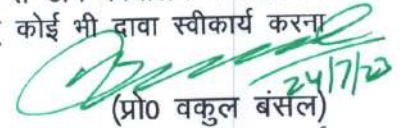 कोई भी दावा स्वीकार्य करना
24/7/23
(प्रो0 वकुल बंसल)